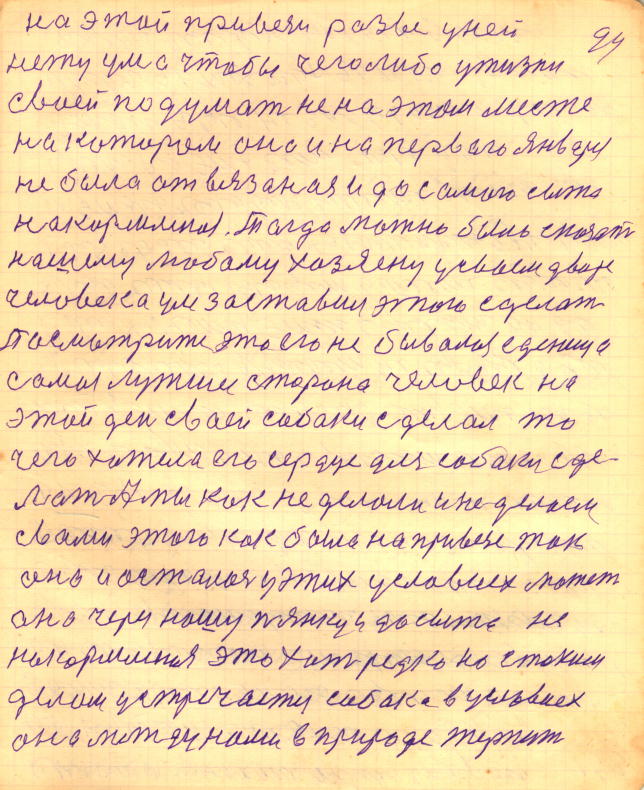 на этой привези разве уней
94
нету ума чтобы чеголибо ужизни
своей подумат не на этом месте
на котором она и на первого января
не была отвязаная и до самого сыта
накормлиная. Тогда можно было сказат
нашему любому хозяену усваем дворе
человека ум заставил этого сделат
Посмотрите это его не бывалая еденица
самая лутшия сторона человек на
этой ден своей собаки сделал то
чего хотела его сердце для собаки сде-
лат А мы как не делали и не делаем
свами этого как была на привезе так
она и осталася у этих условиех может
она через нашу пянку и досыта не
накормлиная это хот редко но стаким
делом устречаету собака в условиех
она между нами в природе терпит